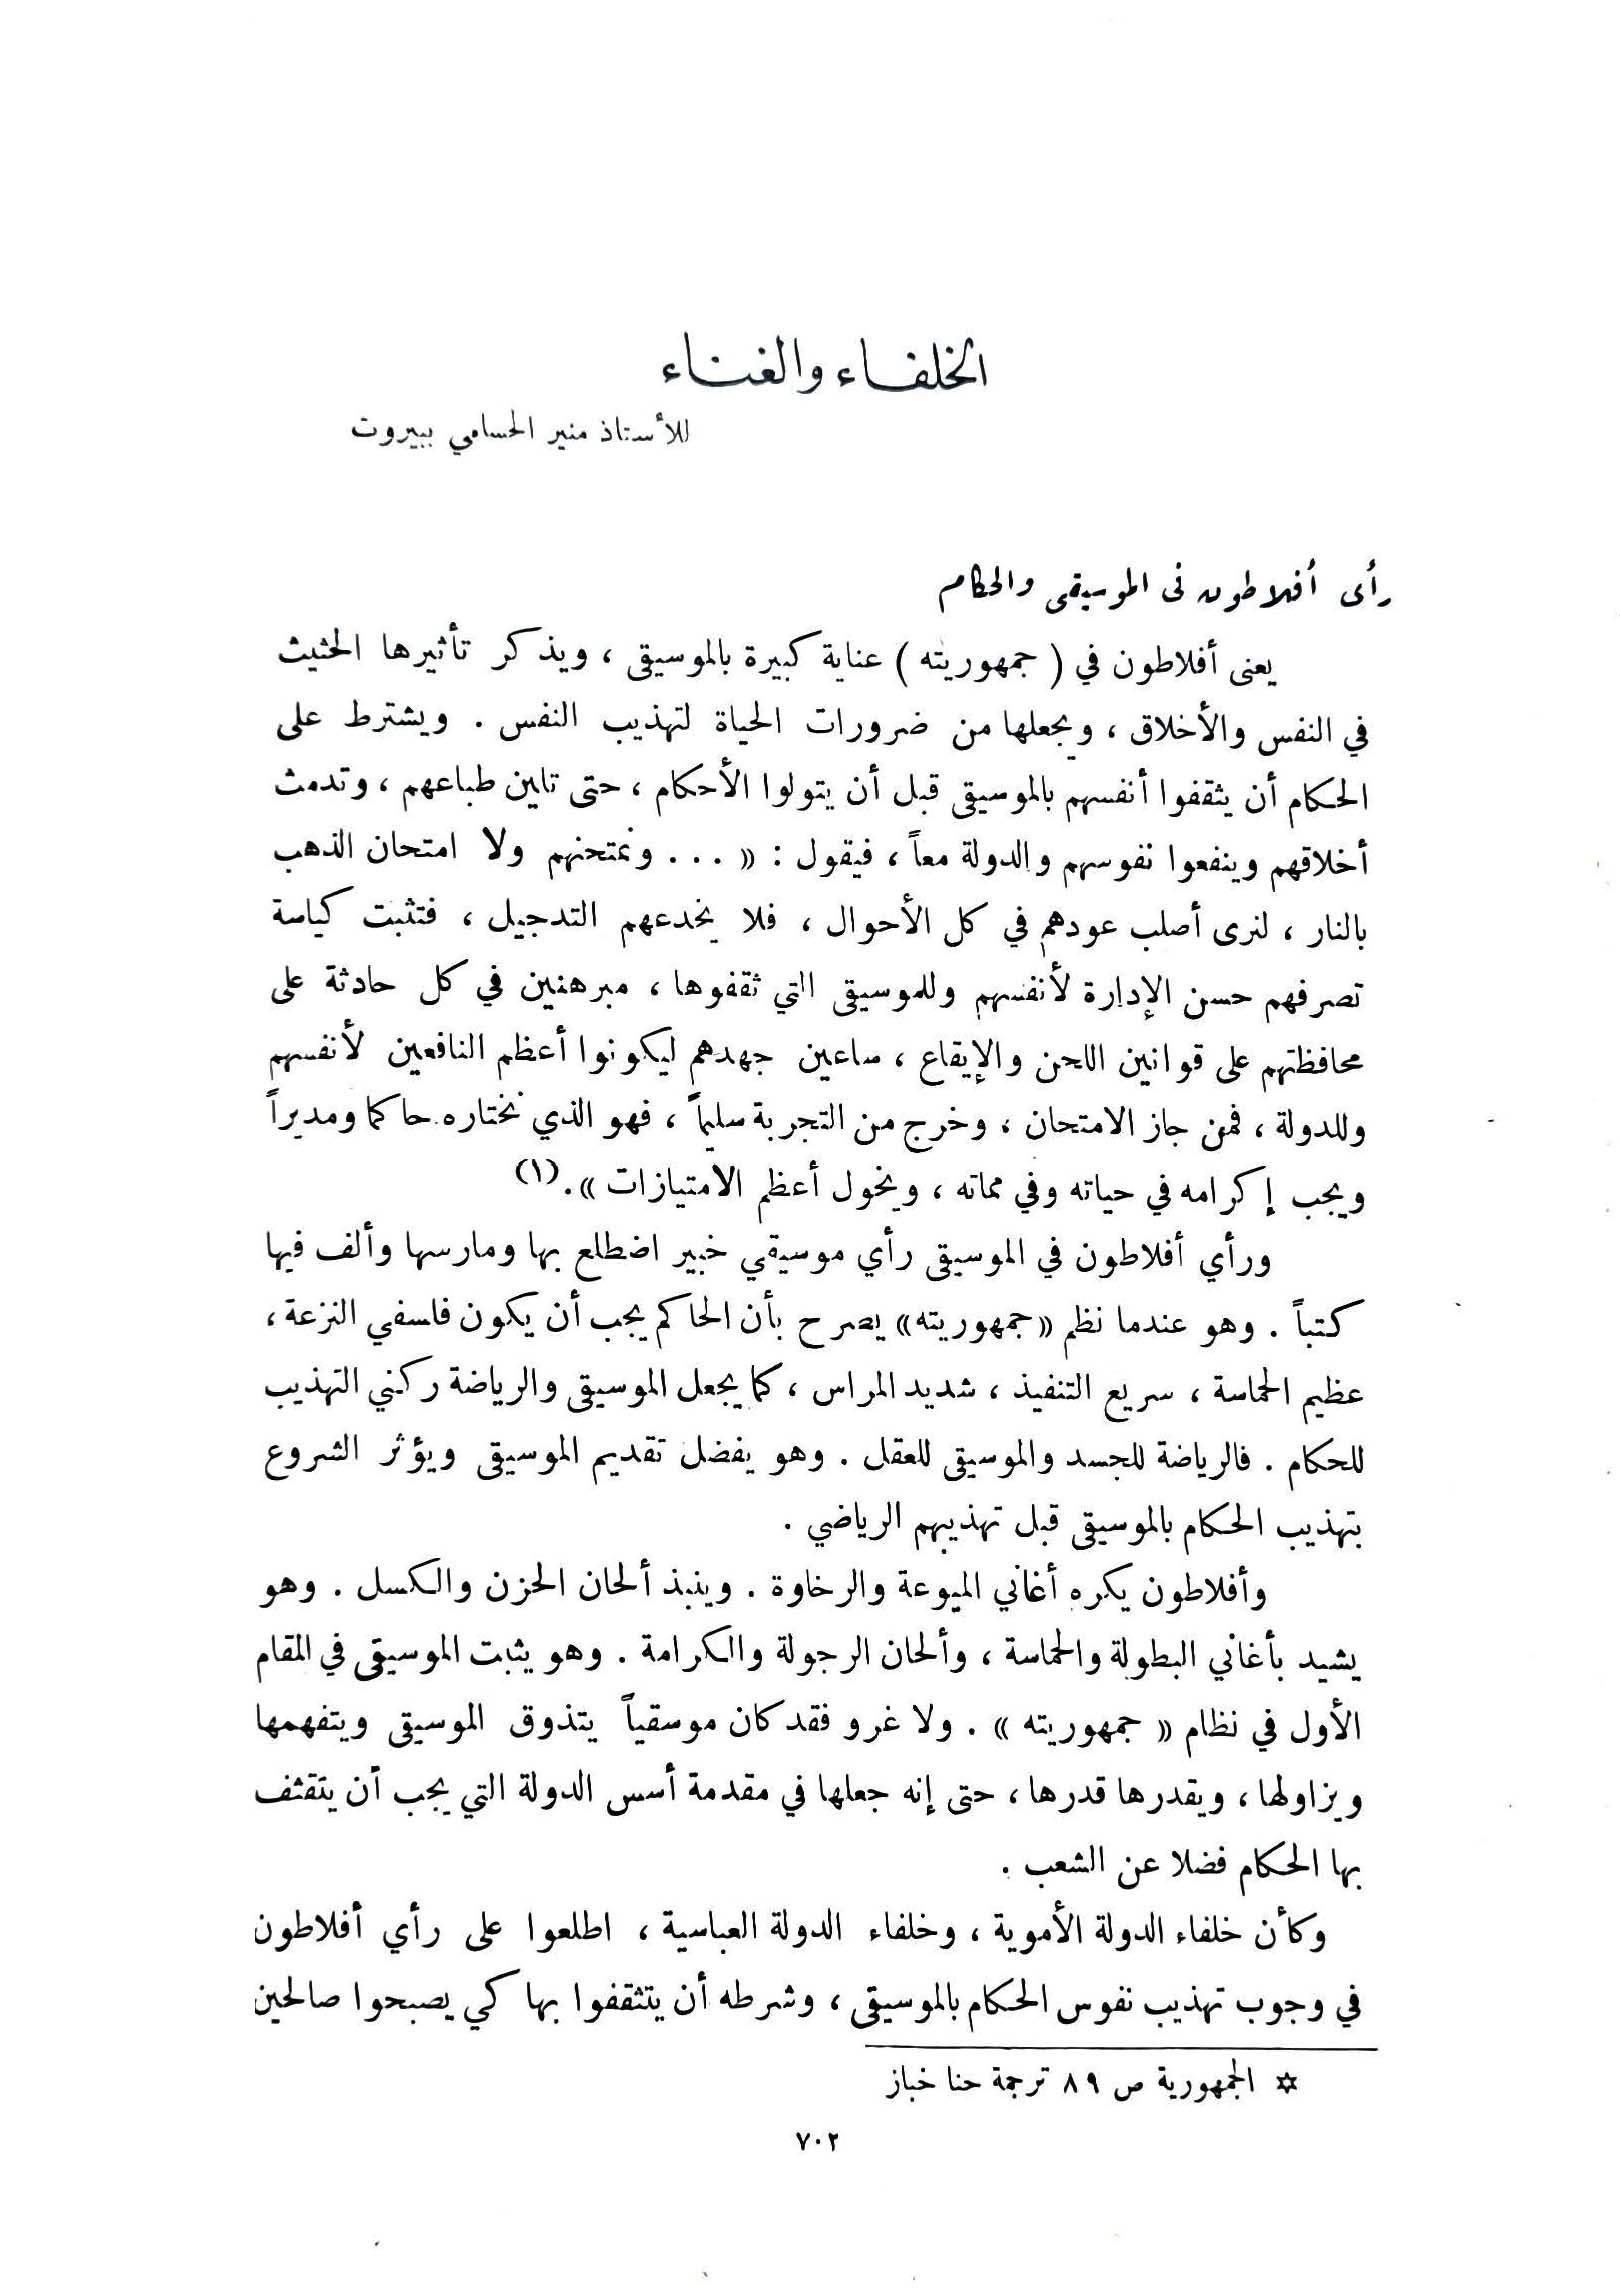 الخلفاء والغناء
للأستاذ منير الحسامي ببيروت
رأى أفلاطون فى الموسيقى والحكام
يعنى أفلاطون في ( جمهوريته ) عناية كبيرة بالموسيقى ، ويذكر تأثيرها الحثيث
في النفس والأخلاق ، ويجعلها من ضرورات الحياة لتهذيب النفس . ويشترط على
الحكام أن يثقفوا أنفسهم بالموسيقى قبل أن يتولوا الأحكام ، حتى تلين طباعهم ، وتدمث
أخلاقهم وينفعوا نفوسهم والدولة معاً ، فيقول : « ... ونمتحنهم ولا امتحان الذهب
بالنار ، لنرى أصلب عودهم في كل الأحوال ، فلا يخدعهم التدجيل ، فتثبت كياسة
تصرفهم حسن الإدارة لأنفسهم وللموسيقى التي ثقفوها ، مبرهنين في كل حادثة على
محافظتهم على قوانين اللحن والإيقاع ، ساعين جهدهم ليكونوا أعظم النافعين لأنفسهم
وللدولة ، فمن جاز الامتحان ، وخرج من التجربة سليماً ، فهو الذي نختاره حاكما ومديراً
ويجب إكرامه في حياته وفي مماته ، ويخول أعظم الامتيازات » . (١)
ورأي أفلاطون في الموسيقى رأي موسيقي خبير اضطلع بها ومارسها وألف فيها
كتباً . وهو عندما نظم «جمهوريته» يصرح بأن الحاكم يجب أن يكون فلسفي النزعة ،
عظيم الحماسة ، سريع التنفيذ ، شديد المراس ، كما يجعل الموسيقى والرياضة ركني التهذيب
للحكام . فالرياضة للجسد والموسيقى للعقل . وهو يفضل تقديم الموسيقى ويؤثر الشروع
بتهذيب الحكام بالموسيقى قبل تهذيبهم الرياضي .
وأفلاطون يكره أغاني الميوعة والرخاوة . وينبذ ألحان الحزن والكسل . وهو
يشيد بأغاني البطولة والحماسة ، وألحان الرجولة والكرامة . وهو يثبت الموسيقى في المقام
الأول في نظام « جمهوريته » . ولا غرو فقد كان موسقياً يتذوق الموسيقى ويتفهمها
ويزاولها ، ويقدرها قدرها ، حتى إنه جعلها في مقدمة أسس الدولة التي يجب أن يتقثف
بها الحكام فضلا عن الشعب .
وكأن خلفاء الدولة الأموية ، وخلفاء الدولة العباسية ، اطلعوا على رأي أفلاطون
في وجوب تهذيب نفوس الحكام بالموسيقى ، وشرطه أن يتثقفوا بها كي يصبحوا صالحين
✡ الجمهورية ص ٨٩ ترجمة حنا خباز
٧٠٢